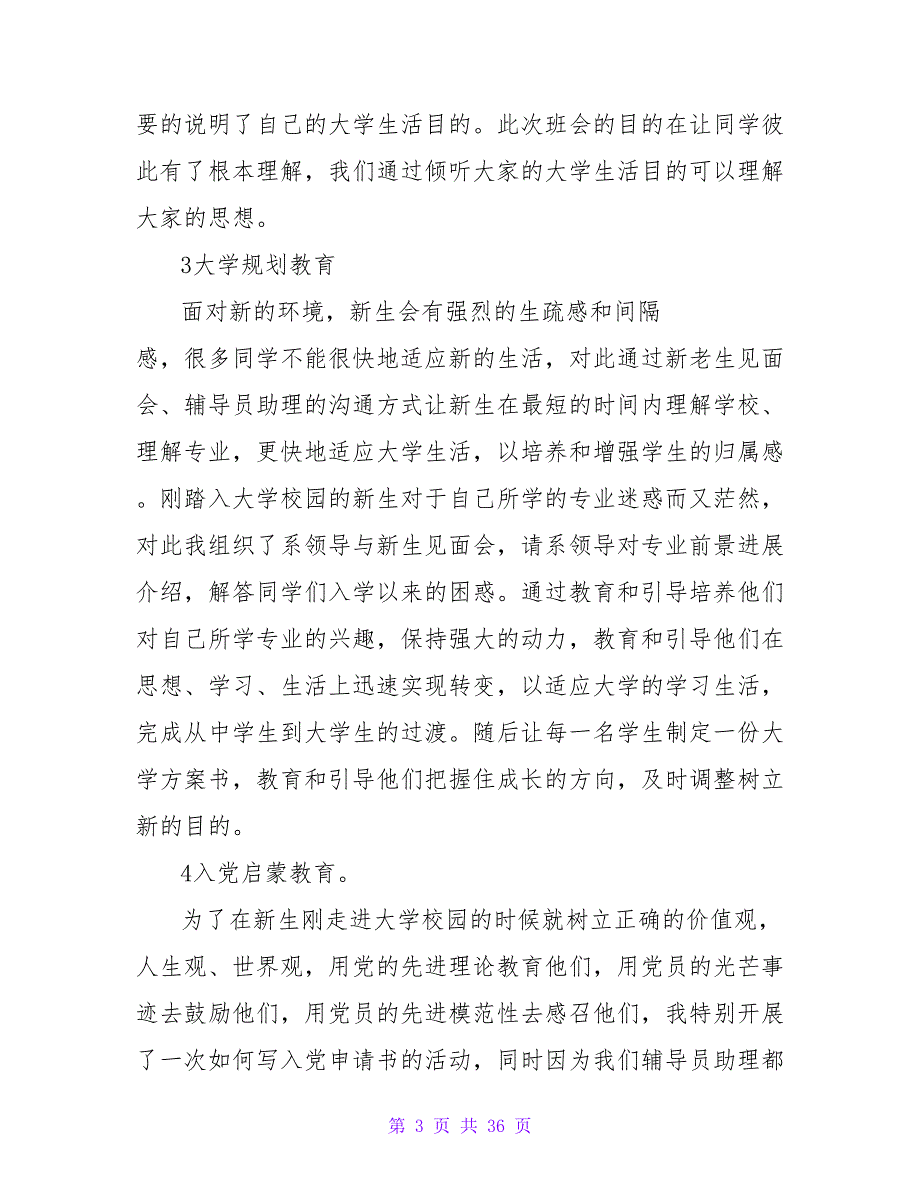 要的说明了自己的大学生活目的。此次班会的目的在让同学彼
此有了根本理解，我们通过倾听大家的大学生活目的可以理解
大家的思想。
3大学规划教育
面对新的环境，新生会有强烈的生疏感和间隔
感，很多同学不能很快地适应新的生活，对此通过新老生见面
会、辅导员助理的沟通方式让新生在最短的时间内理解学校、
理解专业，更快地适应大学生活，以培养和增强学生的归属感
。刚踏入大学校园的新生对于自己所学的专业迷惑而又茫然，
对此我组织了系领导与新生见面会，请系领导对专业前景进展
介绍，解答同学们入学以来的困惑。通过教育和引导培养他们
对自己所学专业的兴趣，保持强大的动力，教育和引导他们在
思想、学习、生活上迅速实现转变，以适应大学的学习生活，
完成从中学生到大学生的过渡。随后让每一名学生制定一份大
学方案书，教育和引导他们把握住成长的方向，及时调整树立
新的目的。
4入党启蒙教育。
为了在新生刚走进大学校园的时候就树立正确的价值观，
人生观、世界观，用党的先进理论教育他们，用党员的光芒事
迹去鼓励他们，用党员的先进模范性去感召他们，我特别开展
了一次如何写入党申请书的活动，同时因为我们辅导员助理都
第 3 页 共 36 页